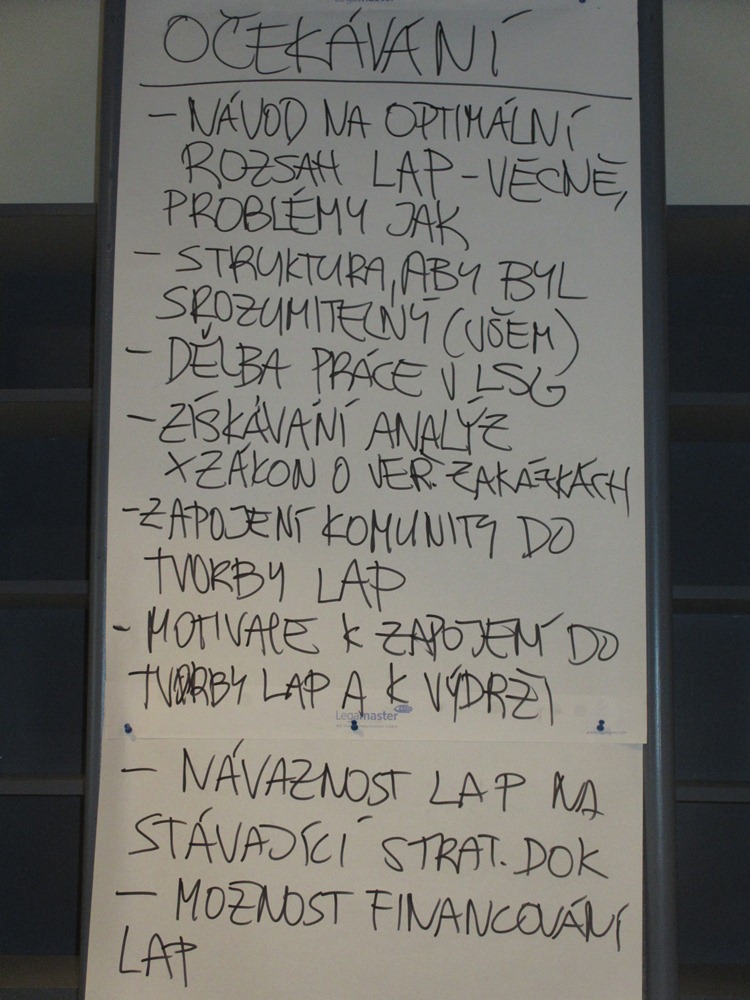 OČEKÁVÁNÍ
- NÁVOD NA OPTIMÁLNÍ
ROZSAH LAP - VĚCNĚ,
PROBLÉMY JAK
- STRUKTURA, ABY BYL
SROZUMITELNÝ (VŠEM)
- DĚLBA PRÁCE V LSG
- ZÍSKÁVÁNÍ ANALÝZ
X ZÁKON O VEŘ. ZAKÁZKÁCH
- ZAPOJENÍ KOMUNITY DO
TVORBY LAP
- MOTIVACE K ZAPOJENÍ DO
TVORBY LAP A K VÝDRŽI
Legamaster
- NÁVAZNOST LAP NA
STÁVAJÍCÍ STRAT. DOK
- MOŽNOST FINANCOVÁNÍ
LAP